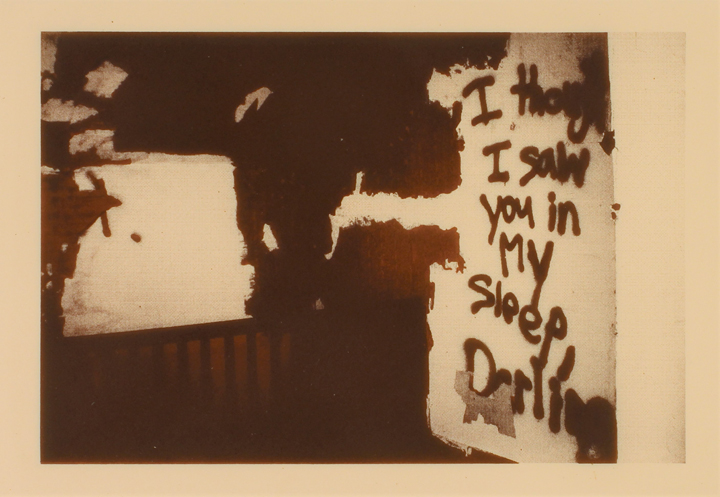 I thoug
I saw
you in
My
Sleep,
Darlin